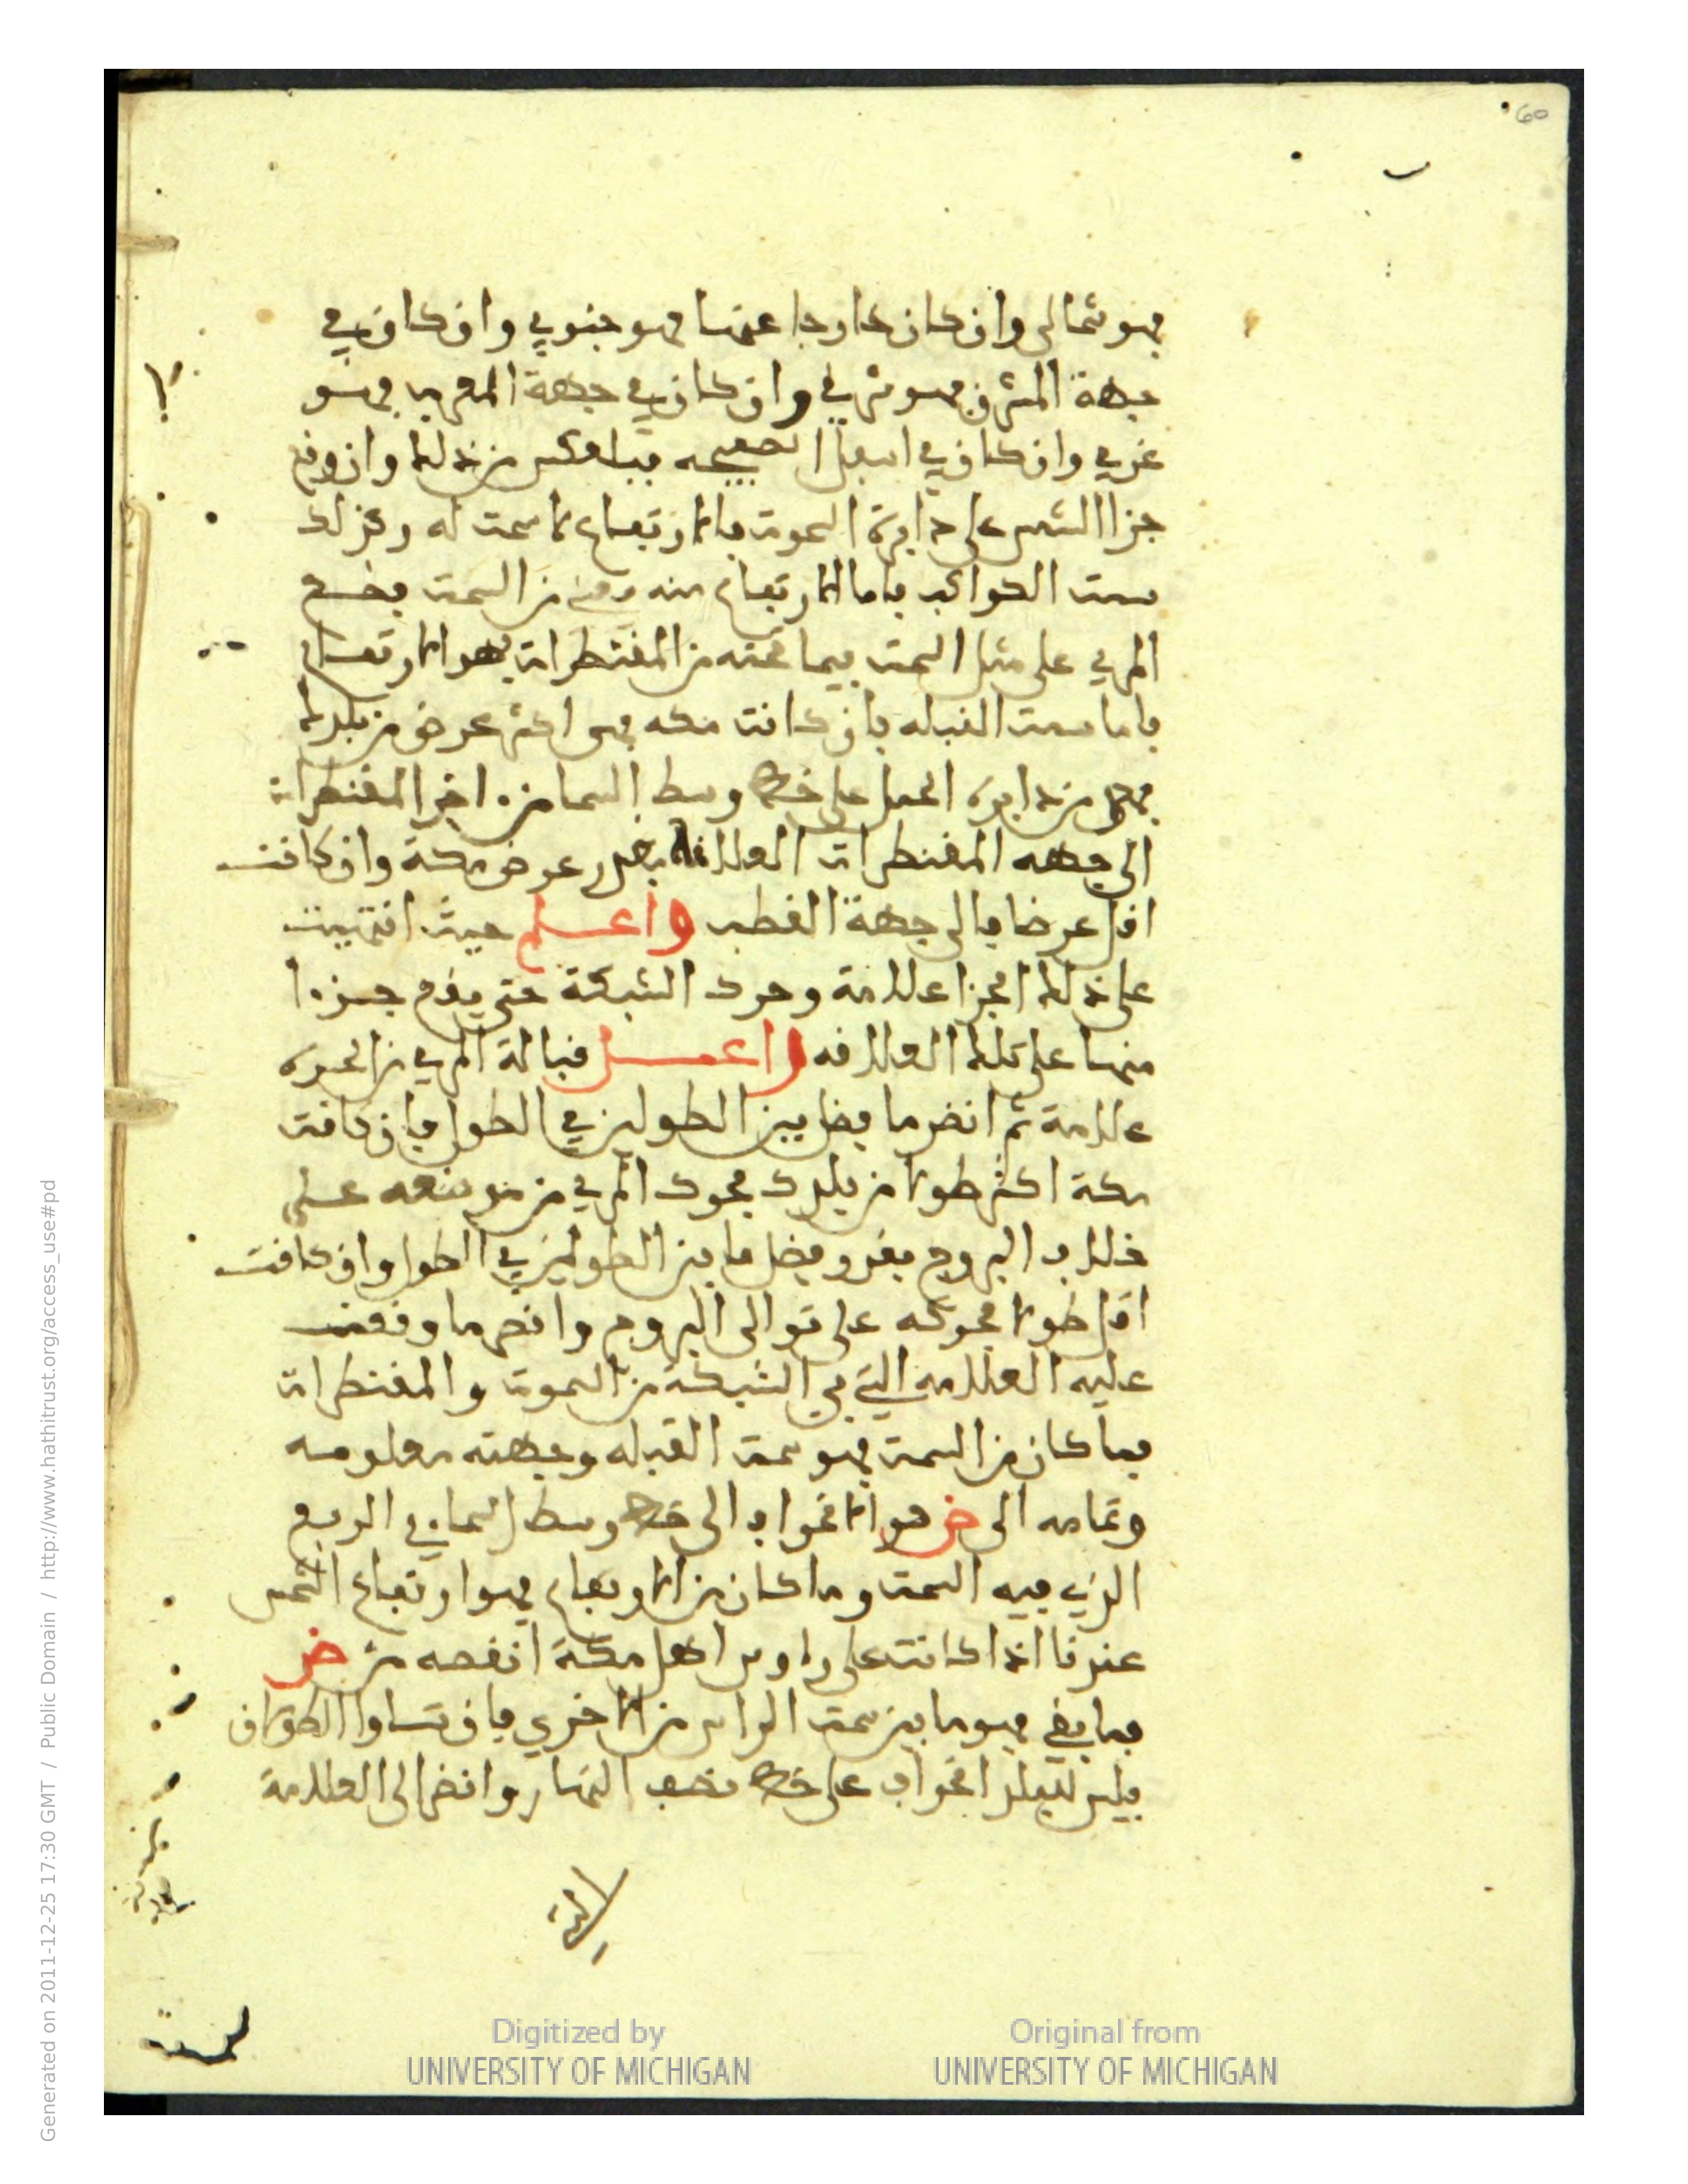 60
فهو شمالى وان كان خارجا عنها فهو جنوبي وان كان في
جهة المشرق فهو شرقي وان كان في جهة المغرب فهو
غربي وان كان في اسفل الصفيحه فبالعكس من ذلك وان وقع
جزا الشمس على دايرة السموت فالارتفاع لا سمت له وكذلك
سمت الكواكب فاما الارتفاع منه من السمت فضع
المري على مثل السمت فيما تحته من المقنطرات فهو الارتفاع
فاما سمت القبله فان كانت مكه هى اكثر عرض من بلدك
من دايره الحمل على خط وسط السما من اخر المقنطرات
الى جهه المقنطرات العلامة بقدر عرض مكة وان كانت
اقل عرضا فالى جهة القطب واعلم حيث انتهيت
على ذلك الجزا علامة وحرك الشبكة حتى يقع جزءا
منها على تلك العلامه واعمل قبالة المري من الحجره
علامة ثم انظر ما فضل بين الطولين في الطول فان كانت
مكة اكثر طولا من بلدك فحرك المري من موضعه على
خلاف البروج بقدر فضل ما بين الطولين في الطول وان كانت
اقل طولا فحركه على توالى البروج وانظر ما وقعت
عليه العلامه التي في الشبكة من السموت والمقنطرات
فما كان من السمت فهو سمت القبله وجهته معلومه
وتمامه الى ض هو الانحراف الى خط وسط السما في الربع
الذي فيه السمت وما كان من الارتفاع فهو ارتفاع الشمس
عندنا اذا كانت على رءوس اهل مكة انقصه من ض
فما بقي فهو ما بين سمت الراس من الاخرى فان تساوا الطولان
فليس للبلد انحراف على خط نصف النهار وانظر الى العلامة
التي
Digitized by
UNIVERSITY OF MICHIGAN
Original from
UNIVERSITY OF MICHIGAN
Generated on 2011-12-25 17:30 GMT / Public Domain / http://www.hathitrust.org/access_use#pd